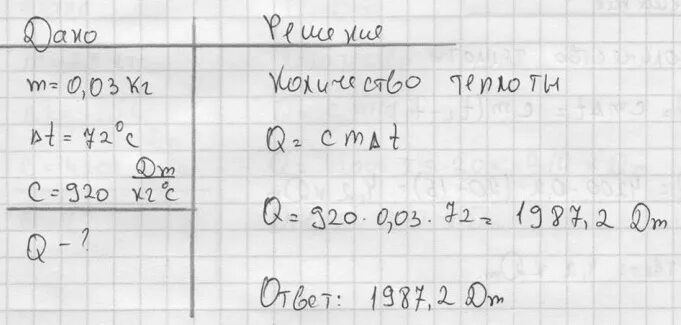 Дано
m = 0,03 кг
Δt = 72°C
C = 920 Дж/кг°C
Q - ?
Решение
Количество теплоты
Q = c m Δt
Q = 920 · 0,03 · 72 = 1987,2 Дж
Ответ: 1987,2 Дж